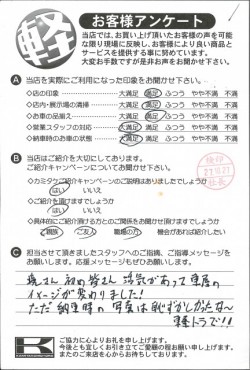 軽
お客様アンケート
当店では、お買い上げ頂いたお客様の声を可能
な限り現場に反映し、お客様により良い商品と
サービスを提供する事に努めています。
大変お手数ですが是非お声をお聞かせ下さい。
A 当店を実際にご利用になった印象をお聞かせ下さい。
◇店の印象 大満足 満足 ふつう やや不満 不満
◇店内・展示場の清掃 大満足 満足 ふつう やや不満 不満
◇お車の品揃え 大満足 満足 ふつう やや不満 不満
◇営業スタッフの対応 大満足 満足 ふつう やや不満 不満
◇納車時のお車の状態 大満足 満足 ふつう やや不満 不満
B 当店はご紹介を大切にしております。
ご紹介キャンペーンについてお聞かせ下さい。
◇カミタケご紹介キャンペーンのご説明はありましたでしょうか
はい いいえ
◇ご紹介を頂けますでしょうか
はい いいえ
◇具体的にご紹介頂ける方とのご関係をお聞かせ頂けますでしょうか
ご親族 ご友人 職場の方 機会があれば紹介したい
C 担当させて頂きましたスタッフへのご指摘、ご指導メッセージを
お願いします。応援メッセージもぜひお願いします。
さん 初め皆さん 活気があって 車屋の
イメージが変わりました!
ただ 納車時の 写真は 恥ずかしかったな〜
軽トラで!!
K
ご協力に心よりお礼を申し上げます。
今後とも宜しくお引き立てご愛顧の程お願い申し上げます。
またのご来店を心からお待ちしております。